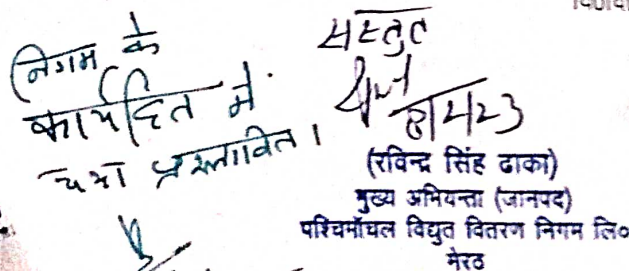 निगम के
कार्यहित में
यथा प्रस्तावित।
सस्तुत
(रविन्द्र सिंह ढाका)
मुख्य अभियन्ता (जानपद)
पश्चिमाँचल विद्युत वितरण निगम लि०
मेरठ